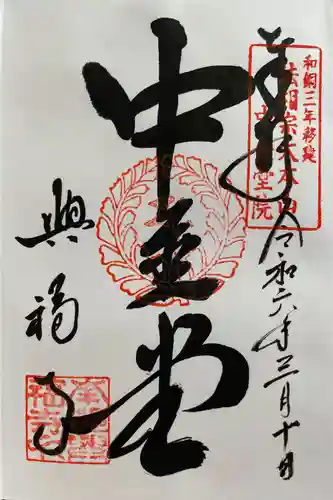 奉拝
和銅三年移建
法相宗大本山
中金堂院
令和六年三月十日
中金堂
興福寺